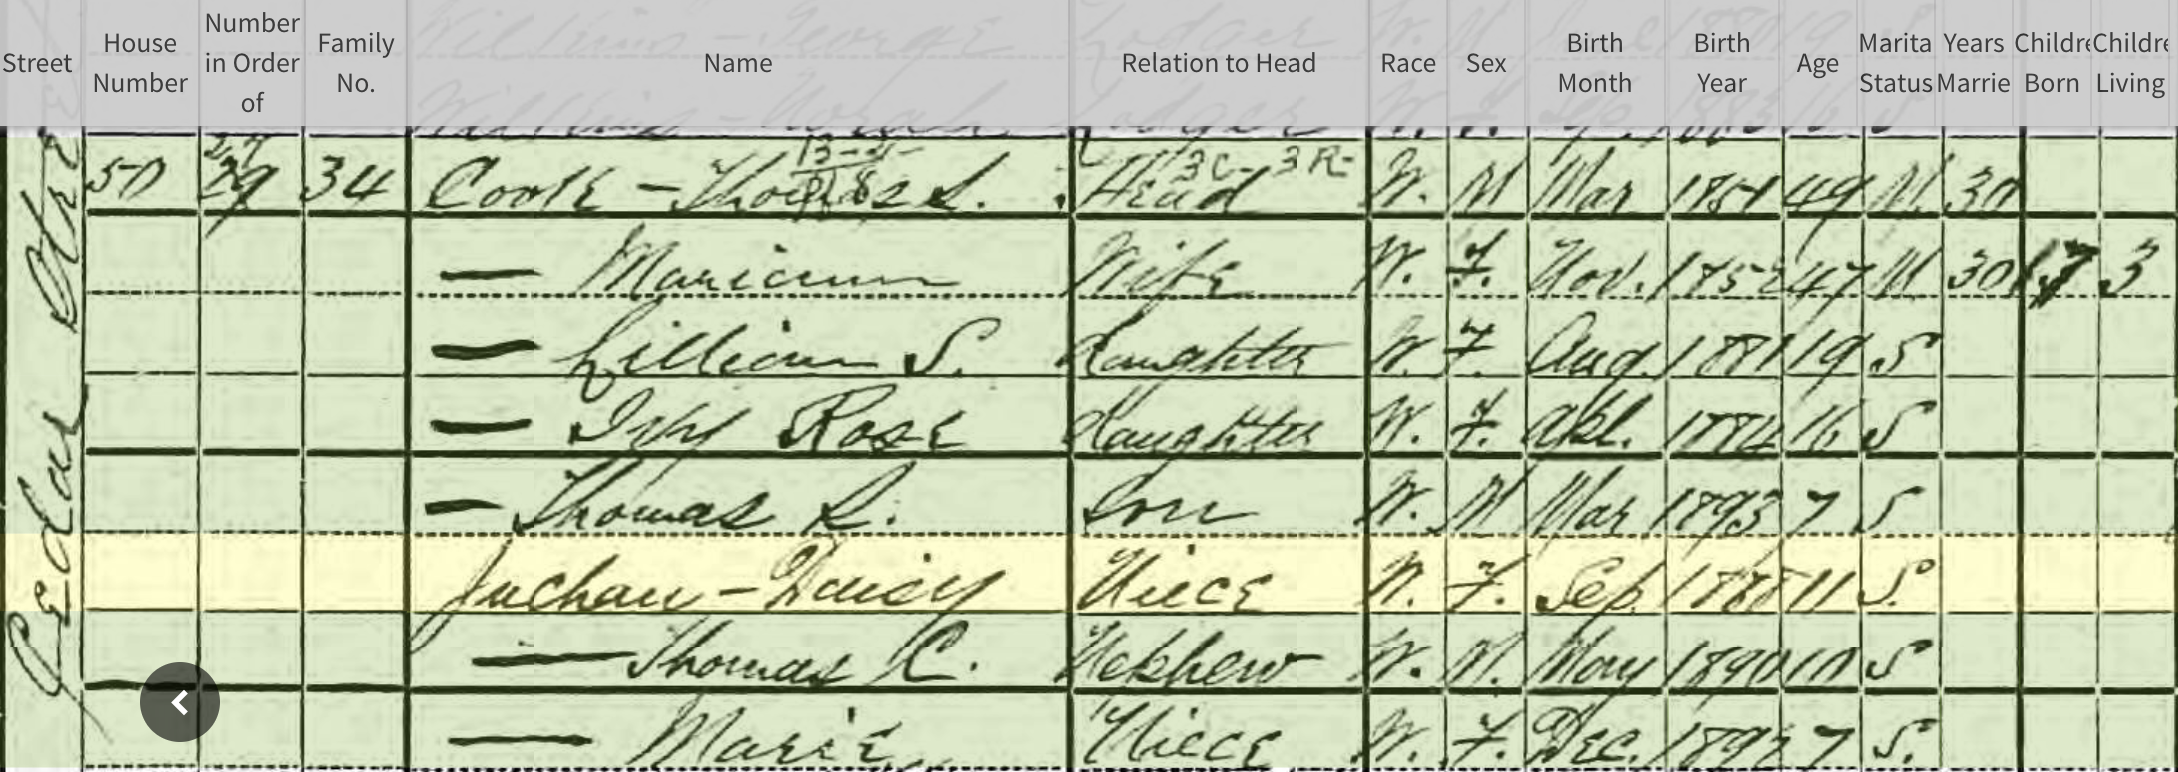 Street House Number Number in Order of Family No. Name Relation to Head Race Sex Birth Month Birth Year Age Marita Status Years Marrie Childre Born Childre Living
50 29 34 Cook - Thomas S. Head W. M Mar 1851 49 M. 30
13-5 3 C- 3 R-
— Mariann Wife W. F. Nov. 1852 47 M 30 3
— Lillian S. daughter W. F. Aug. 1881 19 S
— Ivy Rose daughter W. F. Apl. 1884 16 S
— Thomas S. Son W. M Mar 1893 7 S
Juchau - Daisy Niece W. F. Sep. 1888 11 S.
— Thomas C. Nephew W. M. May 1890 10 S
— Marie Niece W. F. Dec. 1892 7 S.
Cedar Street